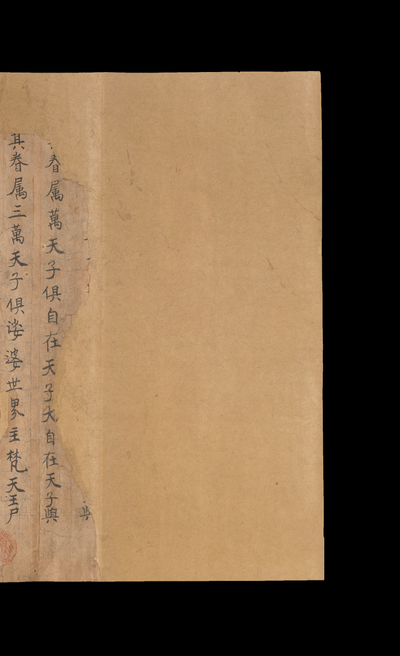 眷属萬天子俱自在天子大自在天子與
其眷属三萬天子俱娑婆世界主梵天王尸